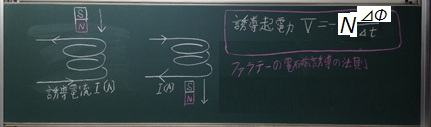 S
N
誘導電流 I(A)
I(A)
S
N
誘導起電力 V=-N ΔΦ/Δt
ファラデーの電磁誘導の法則」